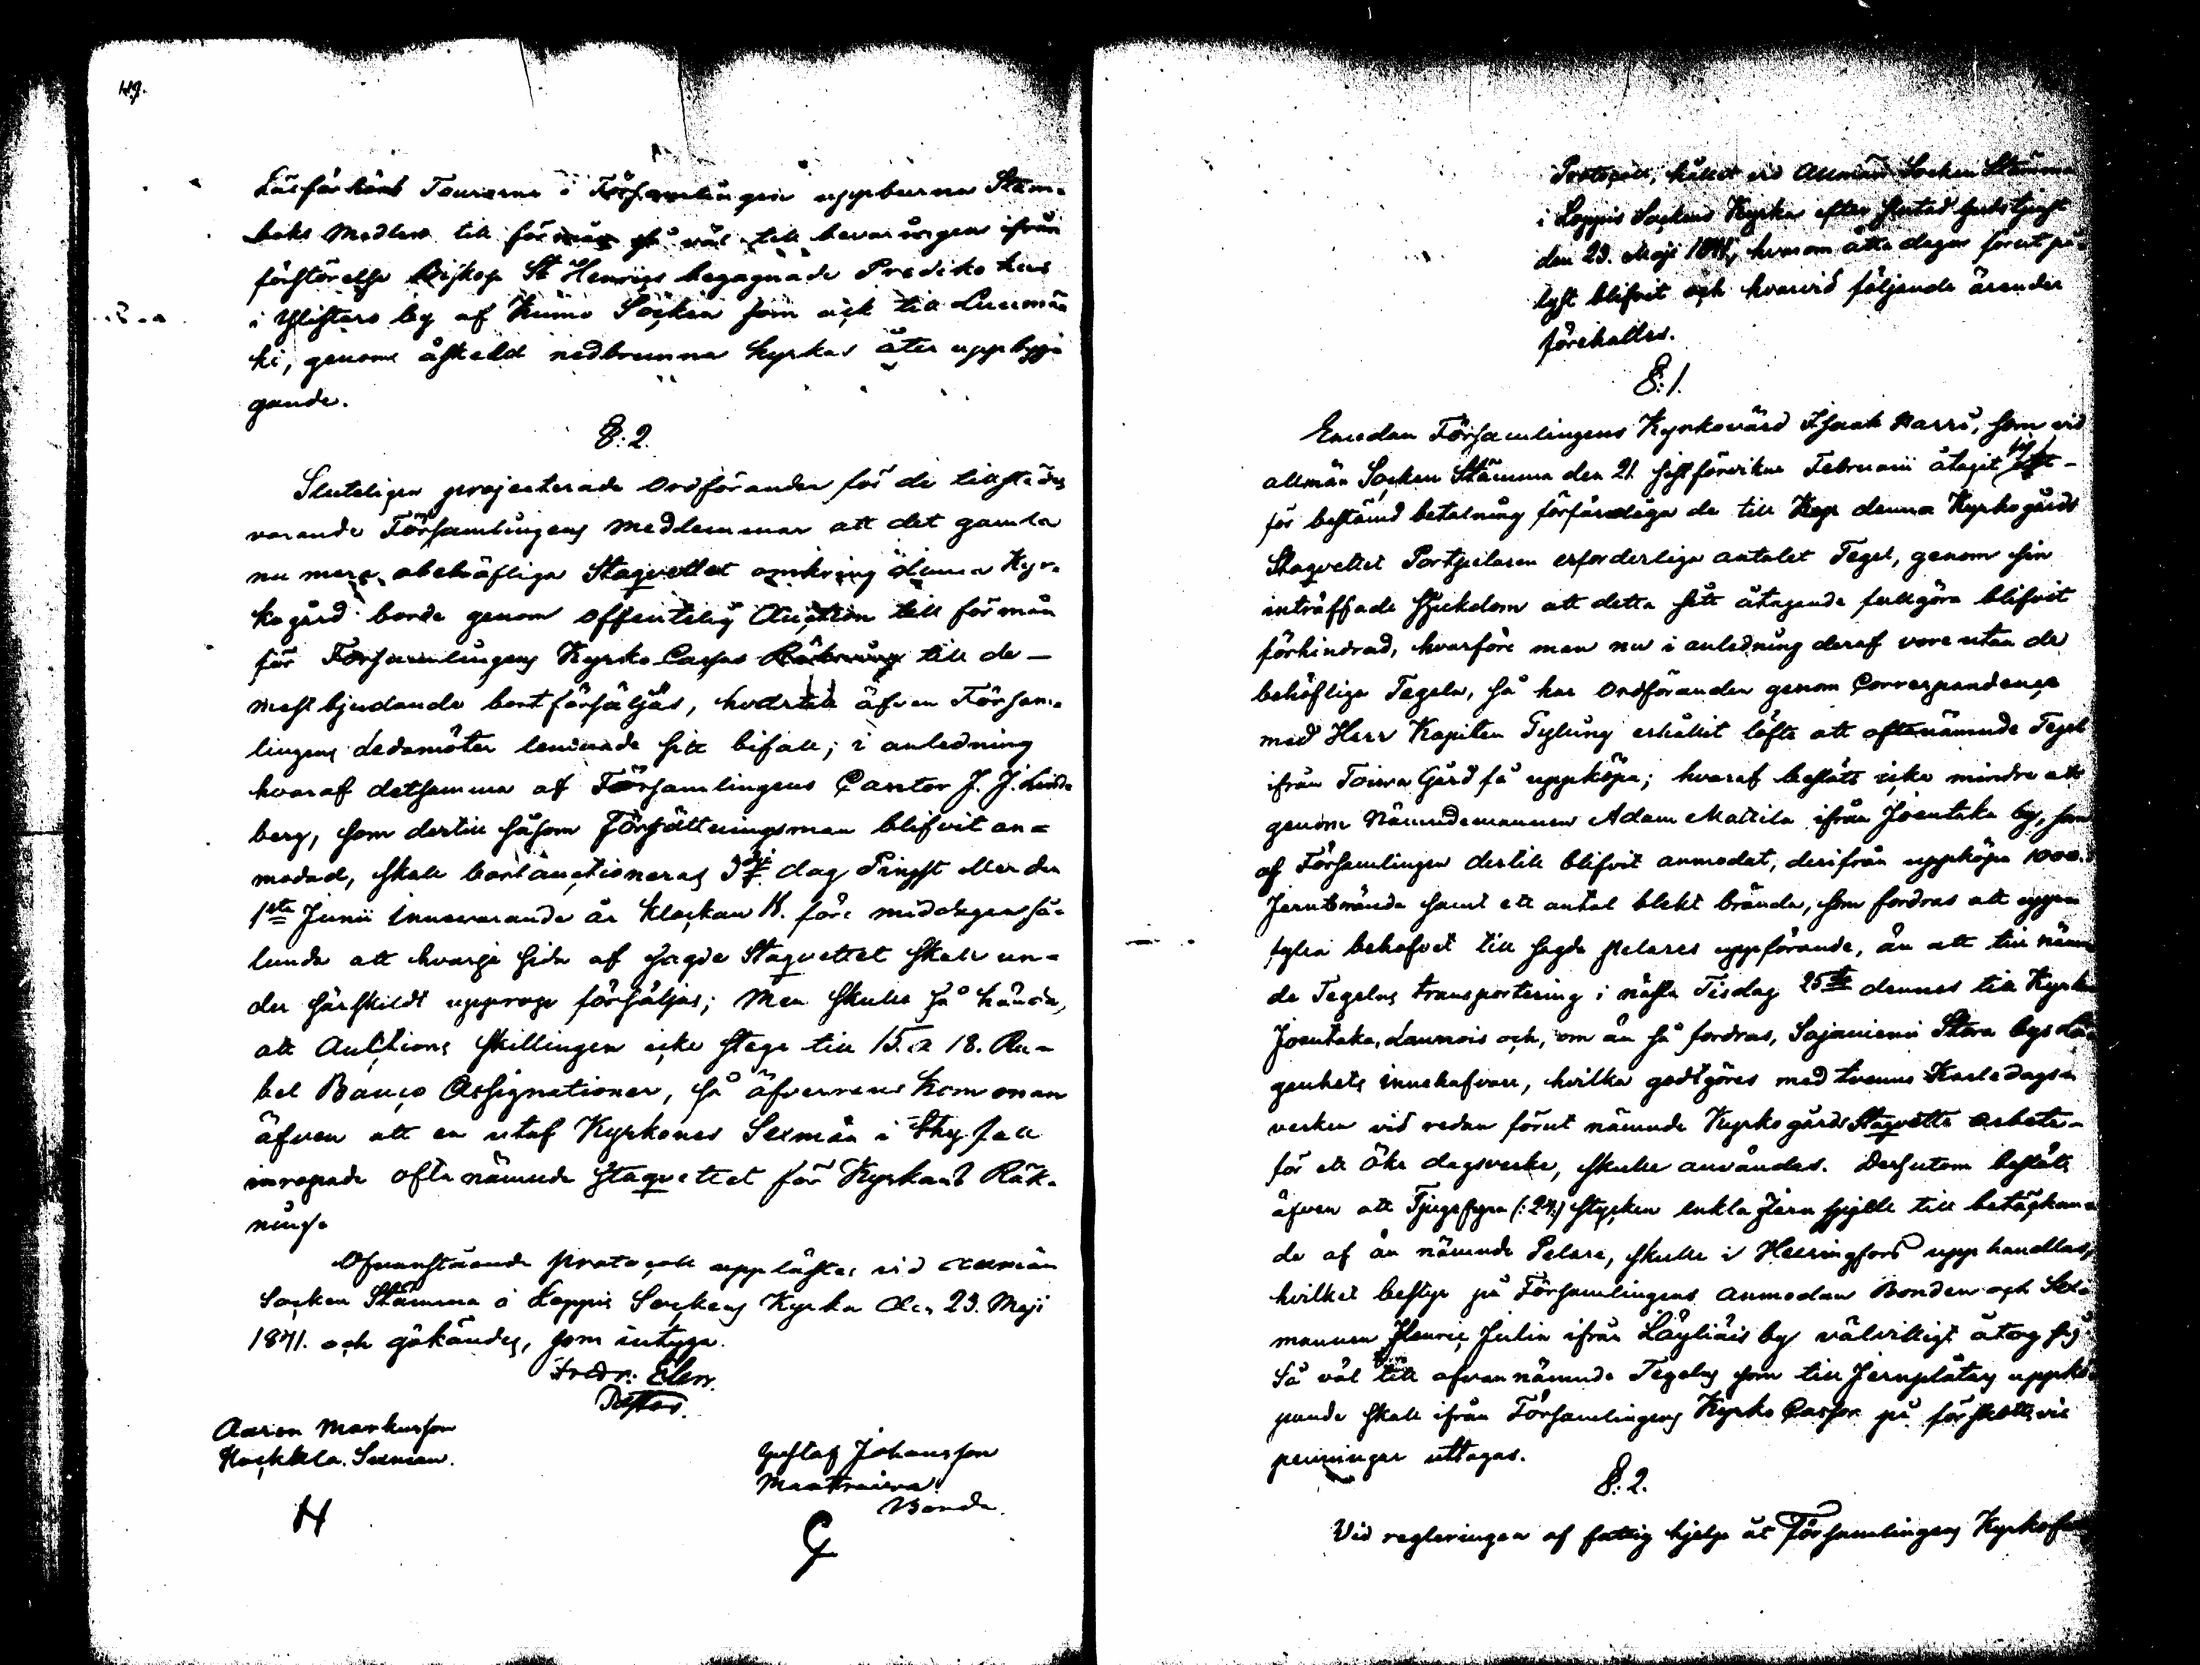 49.
Läsförhörs Tourerne i Församlingen uppburna Stam-
boks Medlen till förmån så väl till bevaringen ifrån
förstörelse Biskop St Henriks begagnade Prediko hus
i Ylistaro by af Kumo Socken som ock till Luumä
ki, genom åskeld nedbrunna kyrkas åter uppbyg-
gande.
§: 2.
Sluteligen projecterade Ordföranden för de tillstädes
varande Församlingens medlemmar att det gamla
nu mera obehöfliga Staquettet omkring denna Kyr-
kogård borde genom offentelig Auction till förmån
för Församlingens Kyrko Cassas Räkning till de
mest bjudande bortförsäljas, hvartill äfven Försam-
lingens Ledamöter lemnade sitt bifall; i anledning
hvaraf detsamma af Församlingens Cantor J. J. Lind-
berg, som dertill såsom Förrättningsman blifvit an-
modad, skall bortauctioneras 3dje dag Pingst eller den
1sta Junii innevarande år klockan 11. före middagen så-
lunda att hvarje sida af sagde Staquettet skall un-
der särskildt upprop försäljas; Men skulle så hända,
att Auctions skillingen icke stege till 15. a 18. Ru-
bel Banco Assignationer, så äfverens kom man
äfven att en utaf Kyrkones Sexmän i thy fall
inropade ofta nämnde Staquettet för Kyrkans Räk-
ning.
Ofvanstående Protocoll upplästes vid allmän
Socken Stämma i Loppis Sockens Kyrka den 23. Maji
1841. och gokändes, som intyga.
Fredr: Elen.
Pastor.
Aaron Markusson
Hockkla. Sexman.
H
Gustaf Johansson
Bonde.
G
Protocoll, hållet vid Allmän Socken Stämma
i Loppis Sockens Kyrka efter slutad gudstjenst
den 23. Maji 1841, hvarom åtta dagar förut på-
lyst blifvit och hvarvid följande ärender
förehades.
§: 1.
Emedan Församlingens Kyrkovärd Isaak Narri, som vid
allmän Socken Stämma den 21. sistförvikne Februarii åtagit sig
för bestämd betalning förfärdiga de till denna Kyrkogårds
Staquettet Portpelaren erforderliga antalet Tegel, genom sin
inträffade sjukdom att detta sitt åtagande fullgöra blifvit
förhindrad, hvarföre man nu i anledning deraf vore utan de
behöfliga Tegeln, så har Ordföranden genom Correspondence
med Herr Kapiten Tylung erhållit löfte att oftanämnde Tegel
ifrån Toivra Gård få uppköpa; hvaraf beslöts icke mindre att
genom Nämndemannen Adam Mattila ifrån Joentaka by, som
af Församlingen dertill blifvit anmodat, derifrån uppköpa 1000.
Jernbrända samt ett antal blekt brända, som fordras att upp-
fylla behofvet till sagde Pelares uppförande, än att till nämn-
de Tegelns transportering i nästa Tisdag 25te dennes till Kyrkan
Joentaka, Launois och, om än så fordras, Sajaniemi Stora bys Lä-
genhets innehafvare, hvilka godtgöres med tvenne Karledags-
verken vid redan förut nämnde Kyrkogårds Staquetts arbete
för ett Öke dagsverke, skulle användas. Dessutom beslöts
äfven att Tjugofyra (:24:) stycken enkla Jern spjell till betäckan-
de af än nämnde Pelare, skulle i Helsingfors upphandlas,
hvilket bestyr på Församlingens anmodan Bonden och Sex-
mannen Henric Julia ifrån Läyliäis by välvilligt åtog sig.
Så väl till ofvannämnde Tegelns som till Jernplåtars uppkö-
pande skall ifrån Församlingens Kyrko Cassa på förskottsvis
penningar uttagas.
§: 2.
Vid regleringen af fattig hjelp åt Församlingens